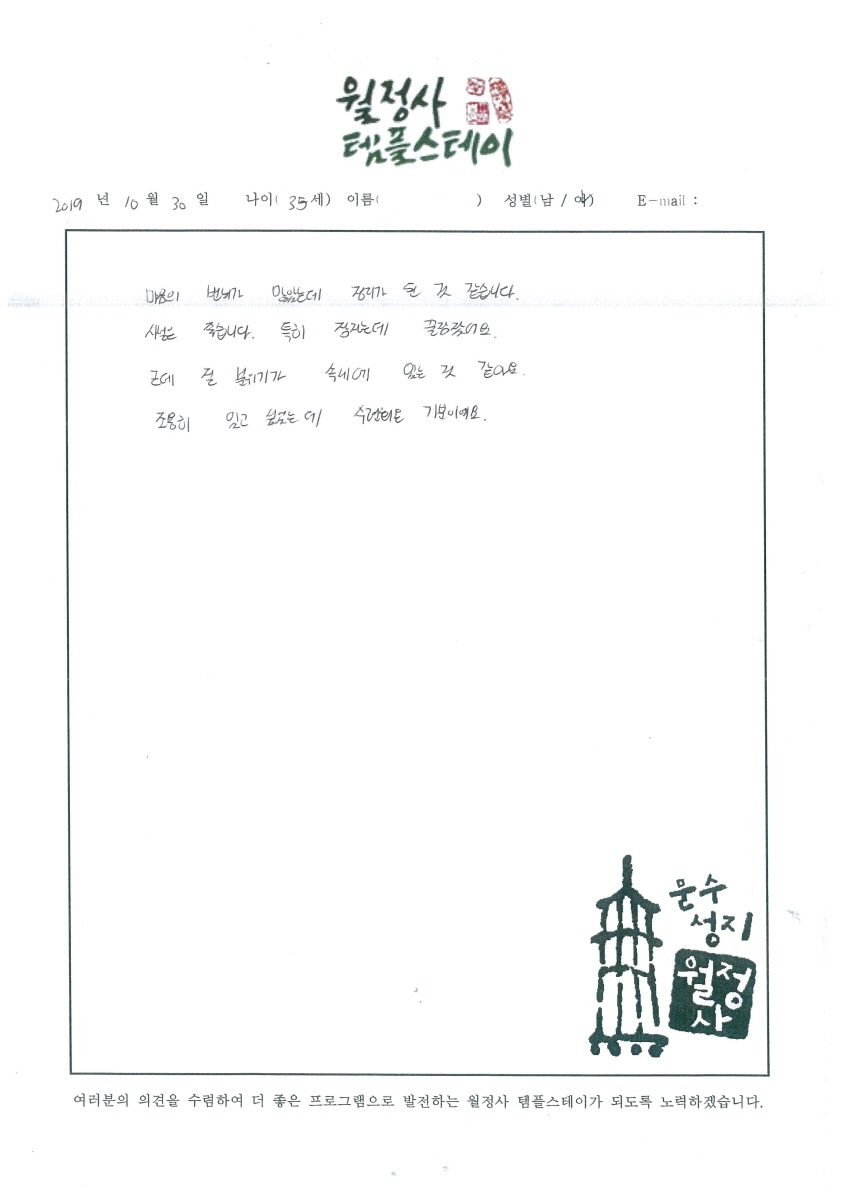 월정사
템플스테이
2019 년 10 월 30 일 나이( 35 세) 이름( ) 성별(남 / 여) E-mail :
마음의 번뇌가 많았는데 정리가 된 것 같습니다.
시설은 좋습니다. 특히 정자는데 끝장났어요.
근데 절 분위기가 속세에 있는 것 같아요.
조용히 있고 싶었는데 기분이에요.
문수
성지
월정
사
여러분의 의견을 수렴하여 더 좋은 프로그램으로 발전하는 월정사 템플스테이가 되도록 노력하겠습니다.